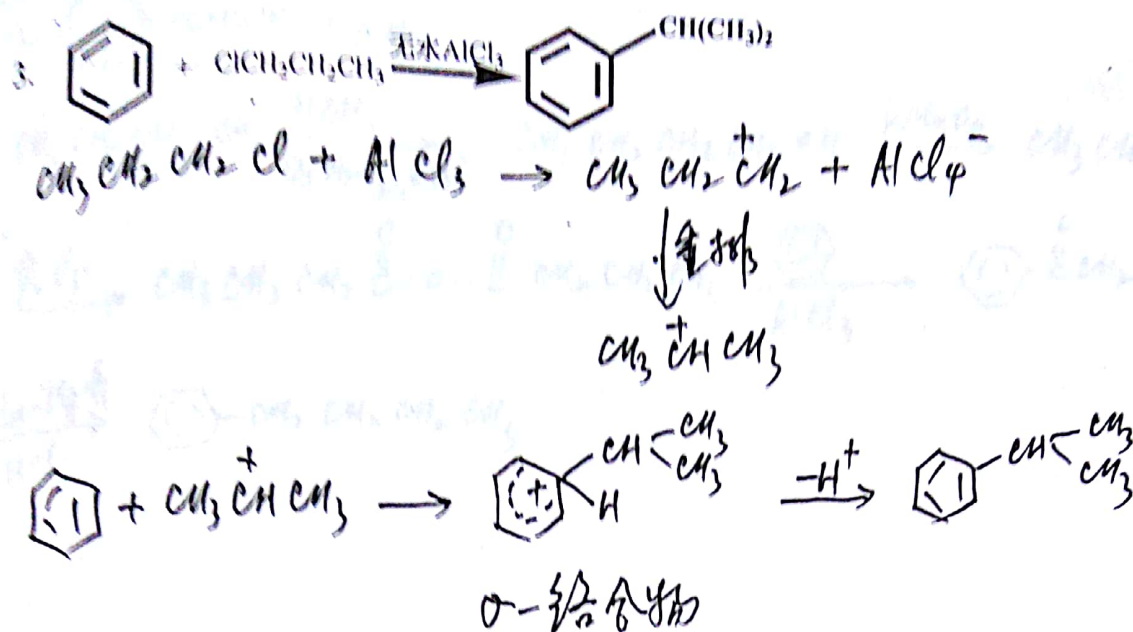 3. + ClCH₂CH₂CH₃ 无水AlCl₃ CH(CH₃)₂
CH₃ CH₂ CH₂ Cl + AlCl₃ → CH₃ CH₂ C⁺H₂ + AlCl₄⁻
↓重排
CH₃ C⁺H CH₃
+ CH₃ C⁺H CH₃ → + CH CH₃ CH₃ H −H⁺ → CH CH₃ CH₃
σ-络合物